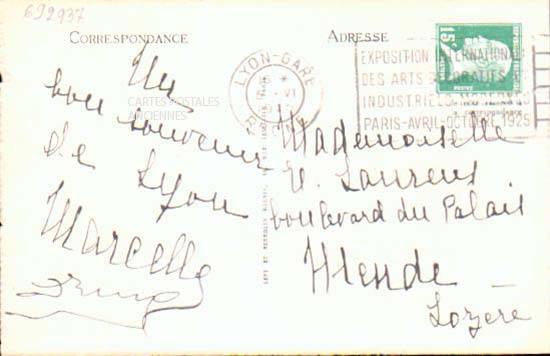 692937
CORRESPONDANCE
ADRESSE
Un
bon souvenir
de Lyon
Marcelle
CARTES POSTALES
ANCIENNES
LYON-GARE
EXPOSITION INTERNATIONALE
DES ARTS DÉCORATIFS &
INDUSTRIELS MODERNES
PARIS-AVRIL-OCTOBRE 1925
15c
POSTES
Mademoiselle
Laurens
boulevard du Palais
Mende
Lozère